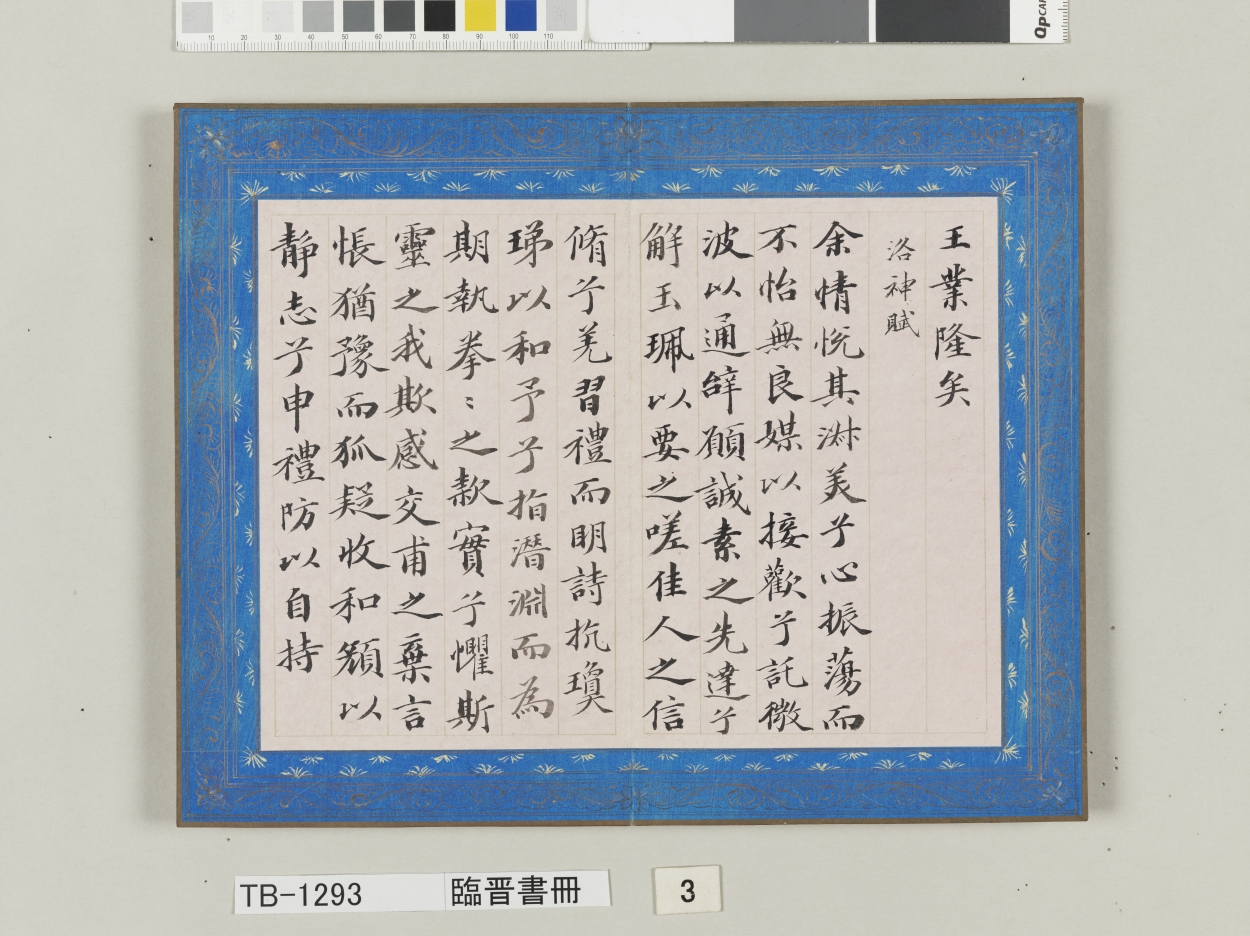 王業隆矣
洛神賦
余情悦其淋美兮心振蕩而
不怡無良媒以接歡兮託微
波以通辞願誠素之先達兮
解玉珮以要之嗟佳人之信
脩兮羌習禮而明詩抗瓊
珶以和予兮指潛淵而為
期執拳〻之款實兮懼斯
靈之我欺感交甫之棄言
悵猶豫而狐疑收和顏以
靜志兮申禮防以自持
TB-1293
臨晋書冊
3
10 20 30 40 50 60 70 80 90 100 110
QPCAR